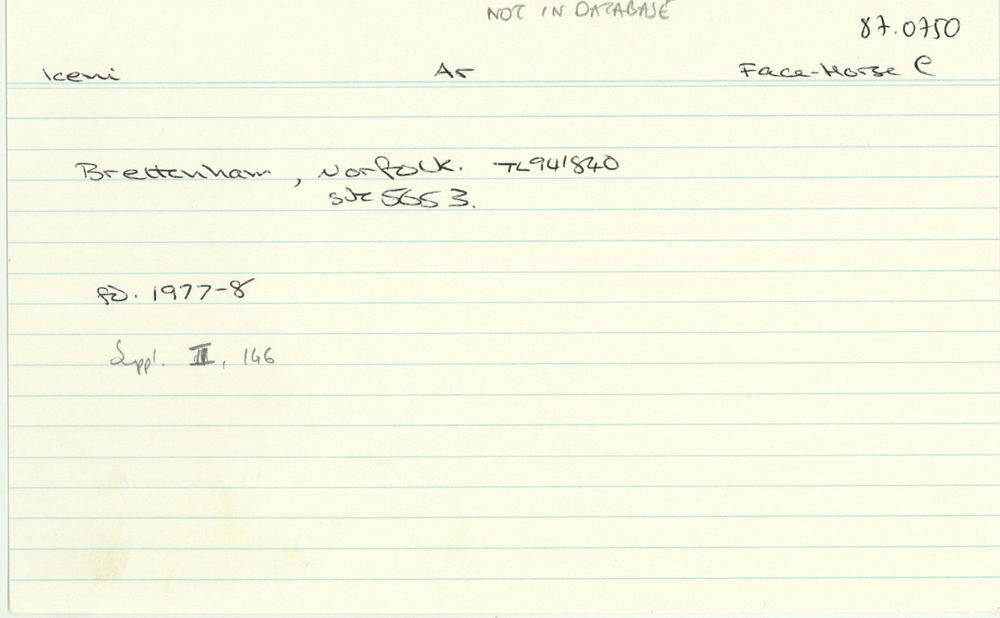 NOT IN DATABASE
87.0750
Iceni Ar Face-Horse C
Brettenham, Norfolk. TL941840
site 5653.
fd. 1977-8
Suppl. II, 146